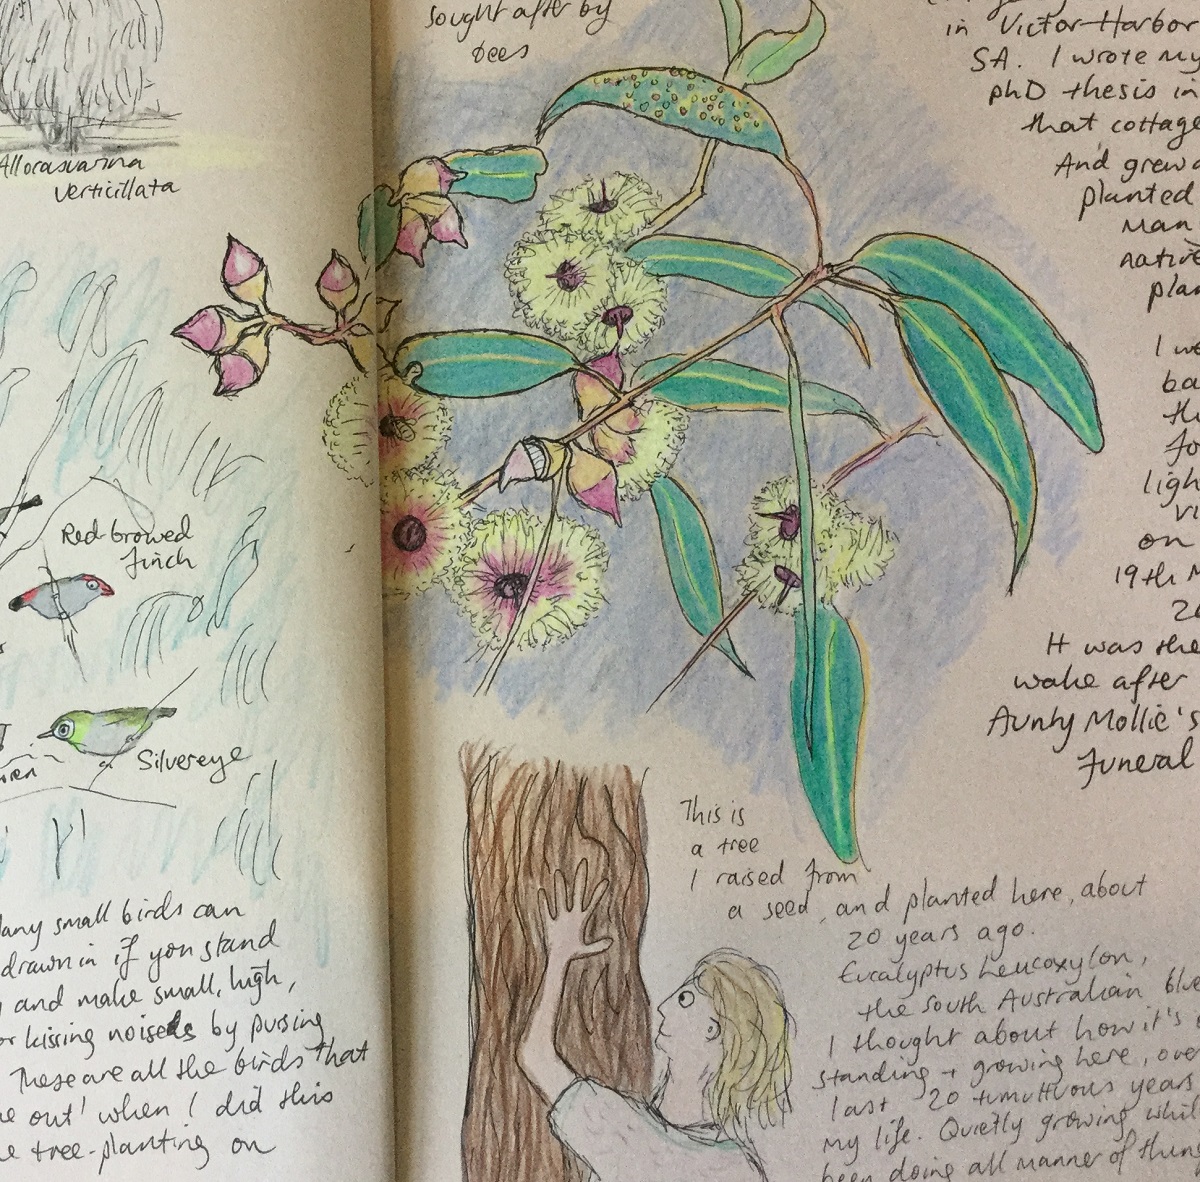 Allocasuarina
verticillata
Red-browed
finch
Silvereye
many small birds can
drawn in if you stand
and make small, high,
or kissing noises by pursing
These are all the birds that
out' when I did this
tree-planting on
sought after by
bees
in Victor Harbor
SA. I wrote my
phD thesis in
that cottage
And grew a
planted
man
native
plan
I we
ba
the
fo
ligh
vi
on
19th M
20
It was the
wake after
Aunty Mollie's
funeral
This is
a tree
I raised from
a seed, and planted here, about
20 years ago.
Eucalyptus Leucoxylon,
the South Australian blue
I thought about how it's
standing + growing here, over
last 20 tumultuous years
my life. Quietly growing whil
been doing all manner of thing